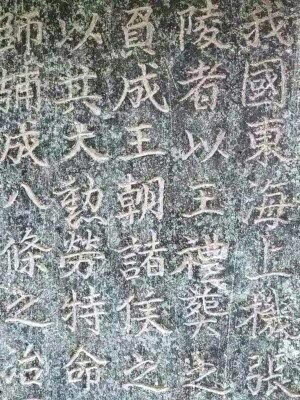 我國東海上機張
陵者以王禮葬之
負成王朝諸侯之
以其大勳勞特命
師輔成八條之治